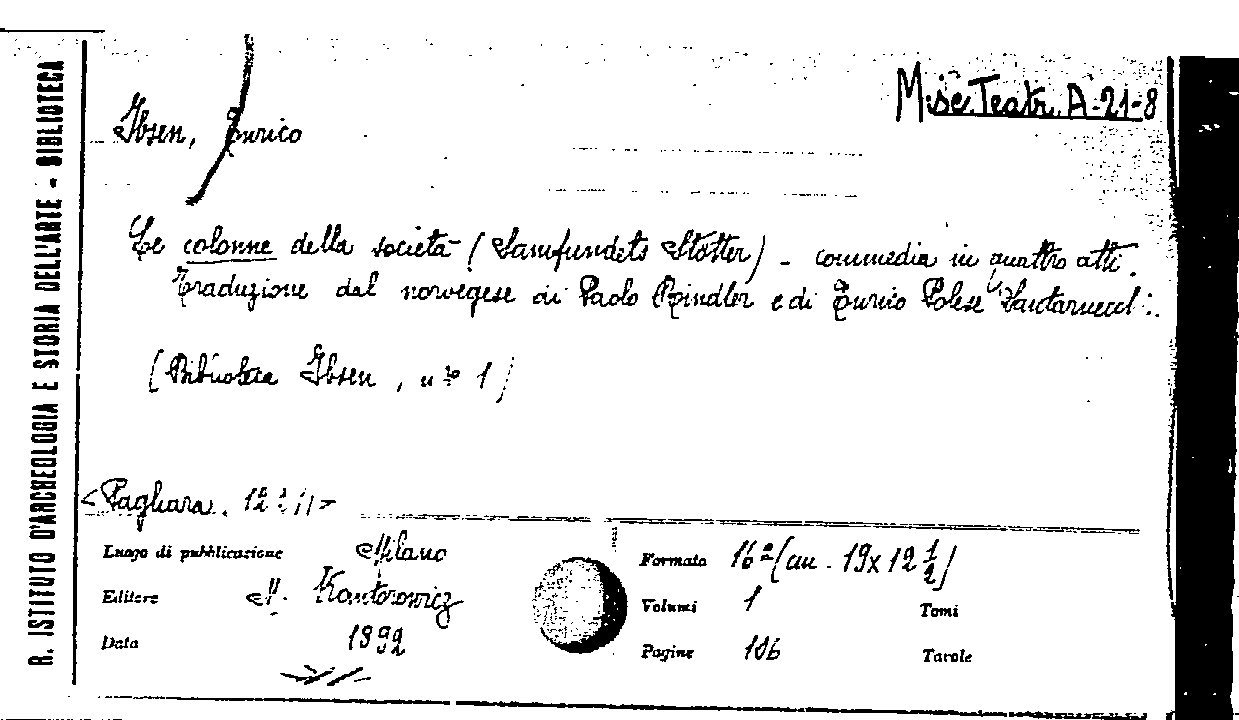 R. ISTITUTO D'ARCHEOLOGIA E STORIA DELL'ARTE - BIBLIOTECA
Misc. Teatr. A-21-8
Ibsen, Enrico
Le colonne della società (Samfundets Støtter) - commedia in quattro atti.
Traduzione dal norvegese di Paolo Rindler e di Enrico Polese Santarnecchi.
(Biblioteca Ibsen, nº 1)
<Pagliara.
Luogo di pubblicazione Milano
Editore M. Kantorowicz
Data 1892
Formato 16º (cm. 19x12 ½)
Volumi 1 Tomi
Pagine 106 Tavole